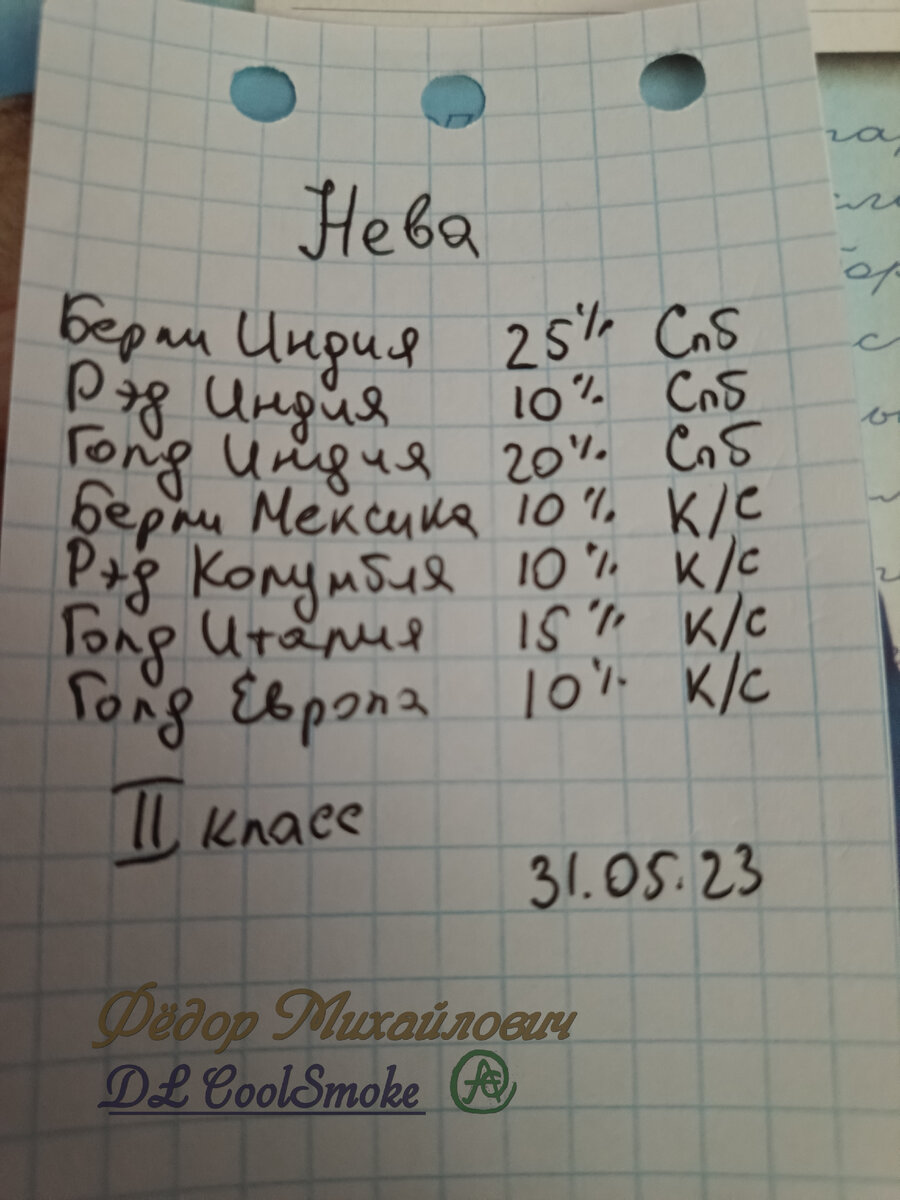 Нева
Берли Индия 25% Спб
Рэд Индия 10% Спб
Голд Индия 20% Спб
Берли Мексика 10% К/С
Рэд Колумбия 10% К/С
Голд Италия 15% К/С
Голд Европа 10% К/С
II класс
31.05.23
Фёдор Михайлович
DL CoolSmoke